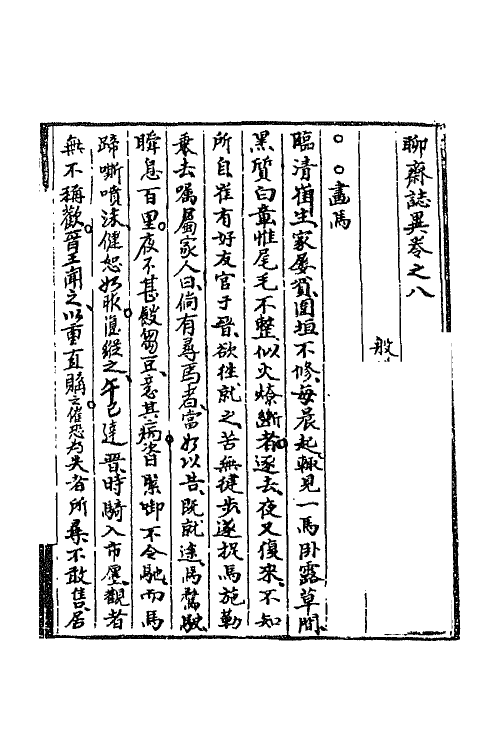 聊齋誌異卷之八
般
畫馬
臨清崔生家屢貧圍垣不修每晨起輒見一馬卧露草間
黑質白章惟尾毛不整似火燎斷者逐去夜又復來不知
所自崔有好友官于晉欲往就之苦無徒步遂捉馬施勒
乗去嘱屬家人曰倘有尋馬者當如以告既就途馬騖駛
瞬息百里夜不甚餤蒭豆意其病次日緊啣不令馳而馬
蹄嘶噴沫健怒如昨復縱之午已達晋時騎入市廛觀者
無不稱歎晉王聞之以重直購之崔恐為失者所尋不敢售居